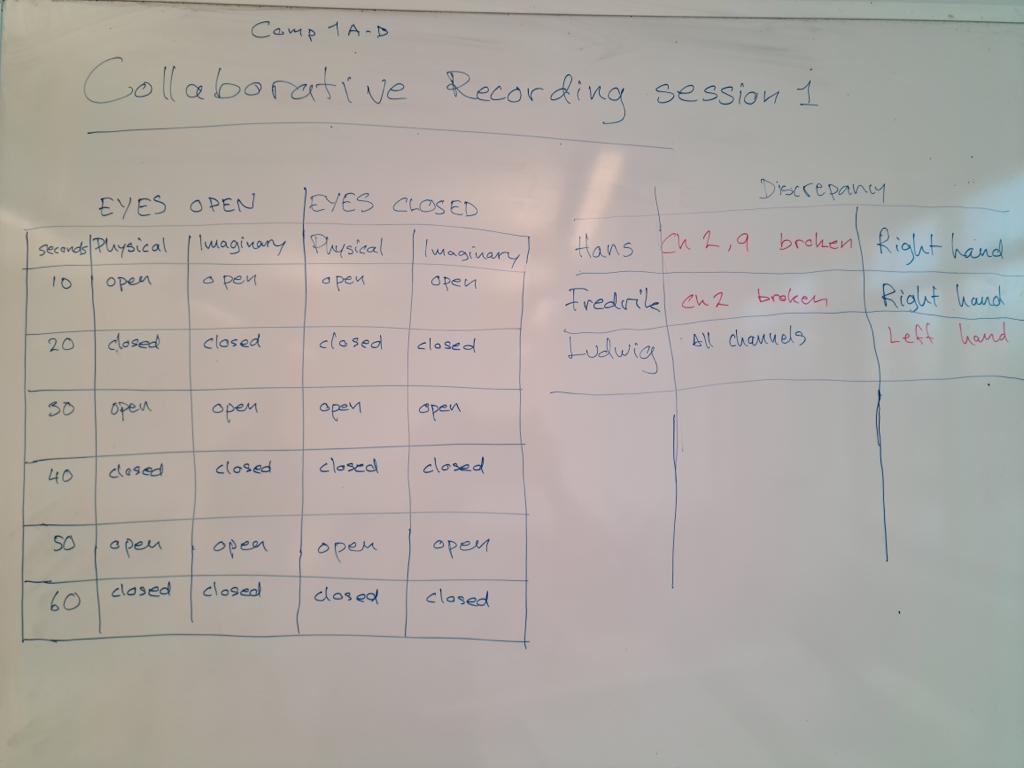 Comp 1A-D
Collaborative Recording session 1
EYES OPEN EYES CLOSED
seconds Physical Imaginary Physical Imaginary
10 open open open open
20 closed closed closed closed
30 open open open open
40 closed closed closed closed
50 open open open open
60 closed closed closed closed
Discrepancy
Hans Ch 2,9 broken Right hand
Fredrik ch2 broken Right hand
Ludwig All channels Left hand